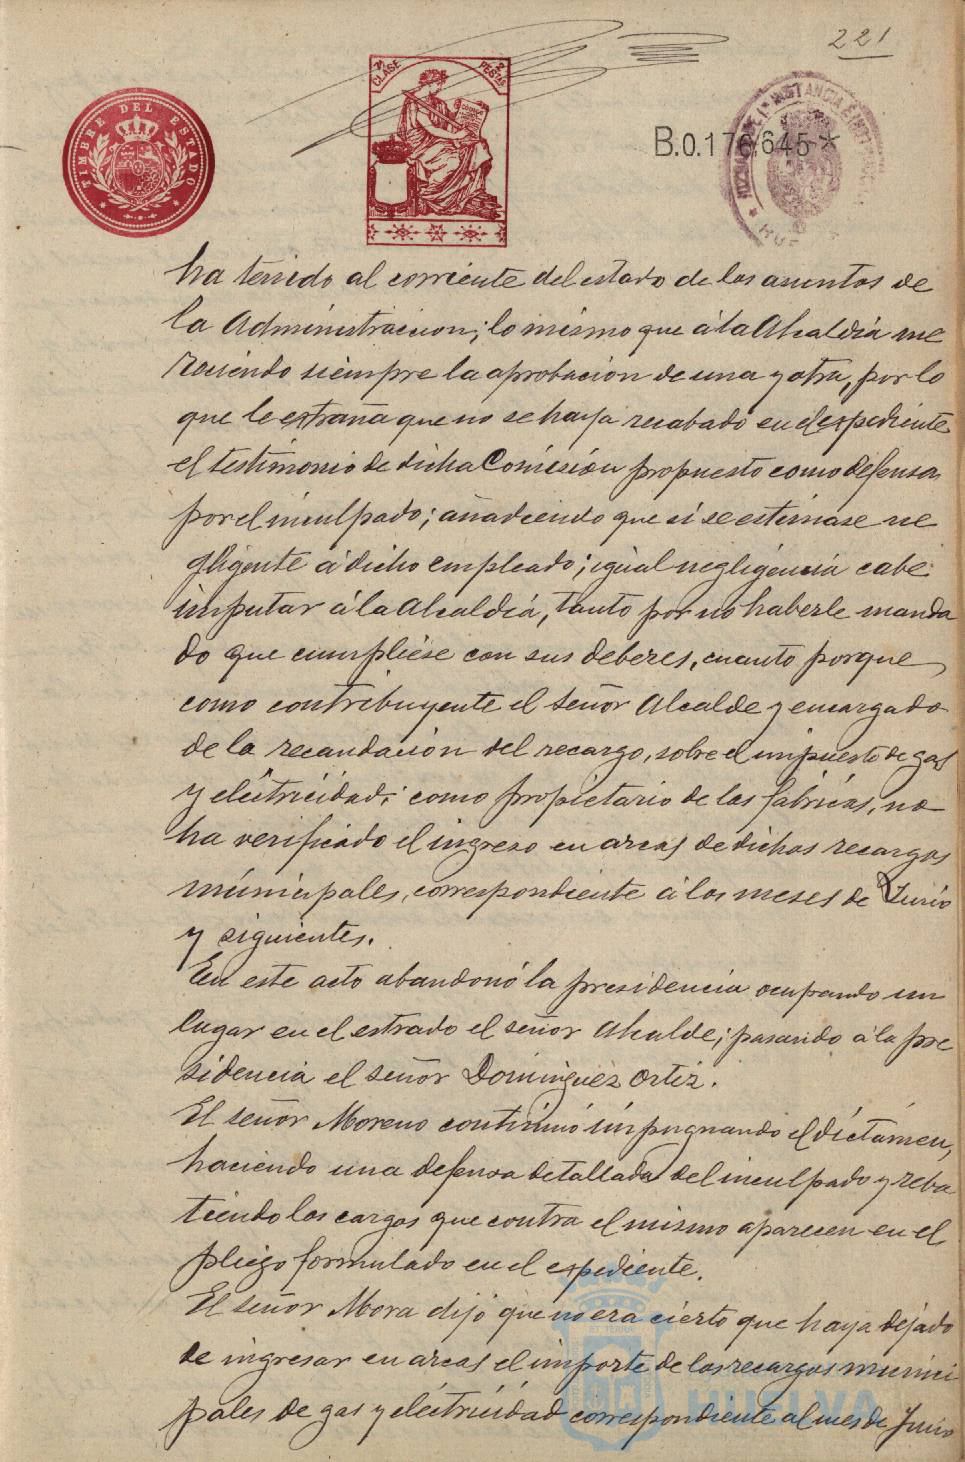 221
TIMBRE DEL ESTADO
7ª CLASE 2 PESETAS
B.0.176,645*
ha tenido al corriente del estado de los asuntos de
la Administracion; lo mismo que á la Alcaldía me
reciendo siempre la aprobación de una y otra, por lo
que le extraña que no se haya recabado en el expediente
el testimonio de dicha Comisión propuesto como defensa
por el inculpado; añadiendo que si se estimase ne
gligente á dicho empleado; igual negligencia cabe
imputar á la Alcaldía, tanto por no haberle manda
do que cumpliese con sus deberes, cuanto porque
como contribuyente el señor Alcalde y encargado
de la recaudación del recargo, sobre el impuesto de gas
y electricidad; como propietario de las fabricas, no
ha verificado el ingreso en arcas de dichos recargos
municipales, correspondiente á los meses de Junio
y siguientes.
En este acto abandonó la presidencia ocupando un
lugar en el estrado el señor Alcalde; pasando á la pre
sidencia el señor Dominguez Ortiz.
El señor Moreno continuó impugnando el dictámen,
haciendo una defensa detallada del inculpado y reba
tiendo los cargos que contra el mismo aparecen en el
pliego formulado en el expediente.
El señor Mora dijo que no era cierto que haya dejado
de ingresar en arcas el importe de los recargos munici
pales de gas y electricidad correspondiente al mes de Junio
HUELVA